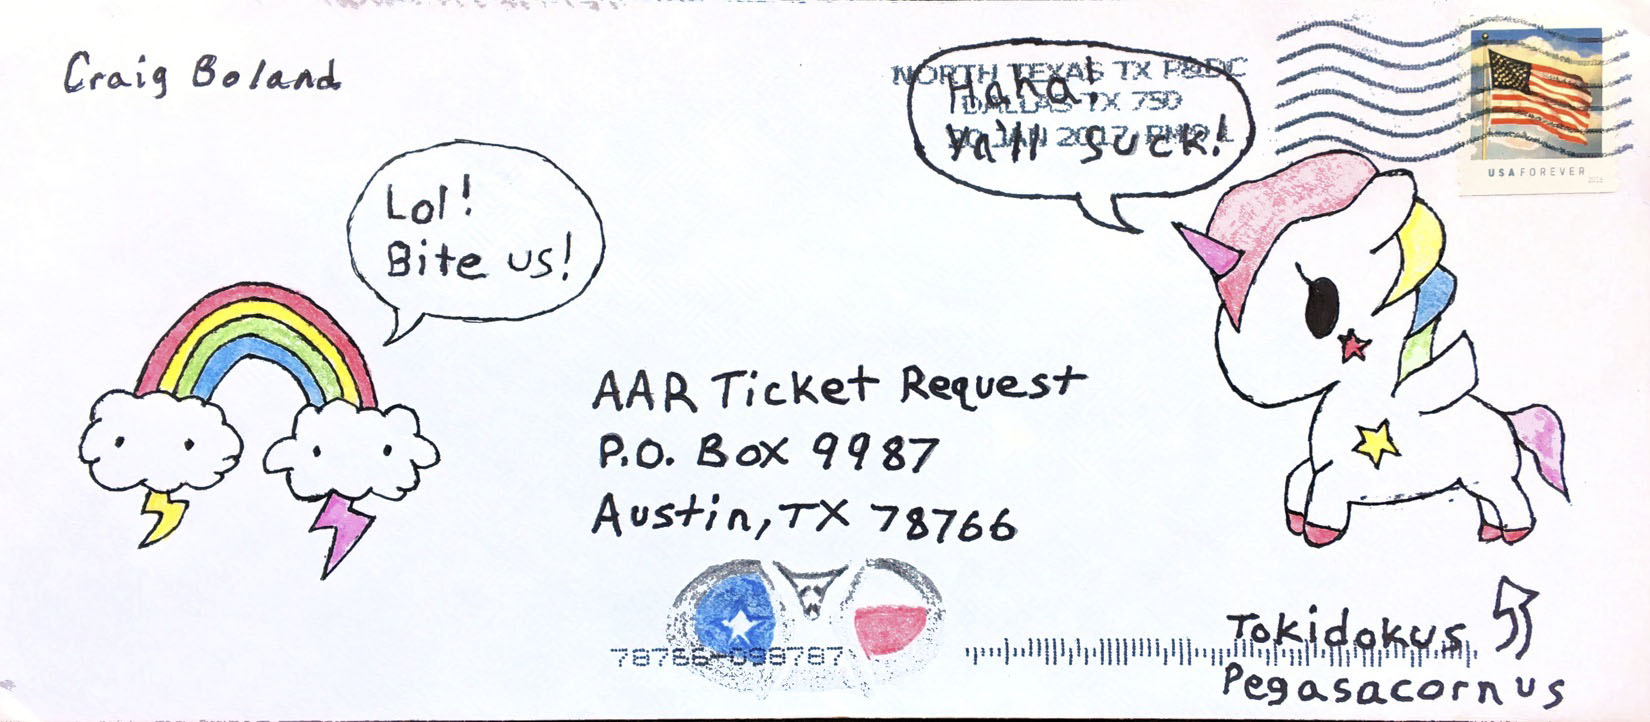 Craig Boland
NORTH TEXAS TX P&DC
DALLAS TX 750
JAN 2017 PM
Haha!
Ya'll suck!
USA FOREVER
2016
Lol!
Bite us!
AAR Ticket Request
P.O. Box 9987
Austin, TX 78766
78766-998787
Tokidokus
Pegasacornus